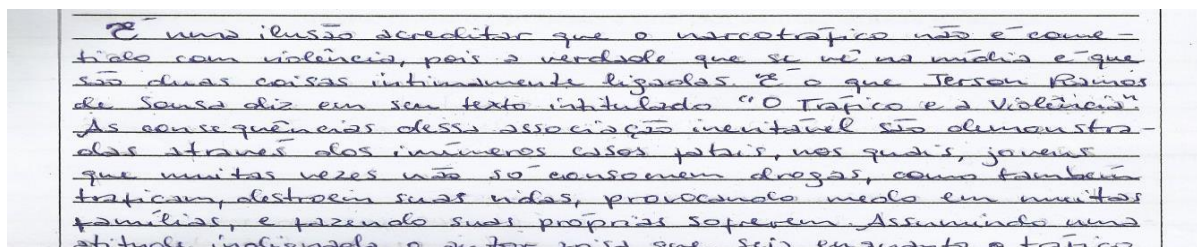 É uma ilusão acreditar que o narcotráfico não é come-
tido com violência, pois a verdade que se vê na mídia é que
são duas coisas intimamente ligadas. É o que Jerson Ramos
de Sousa diz em seu texto intitulado "O Tráfico e a Violência".
As consequências dessa associação inevitável são demonstra-
das através dos inúmeros casos fatais, nos quais, jovens
que muitas vezes não só consomem drogas, como também
traficam, destroem suas vidas, provocando medo em muitas
famílias, e fazendo suas próprias sofrerem. Assumindo uma
atitude indignada o autor visa que seja enquanto o tráfico